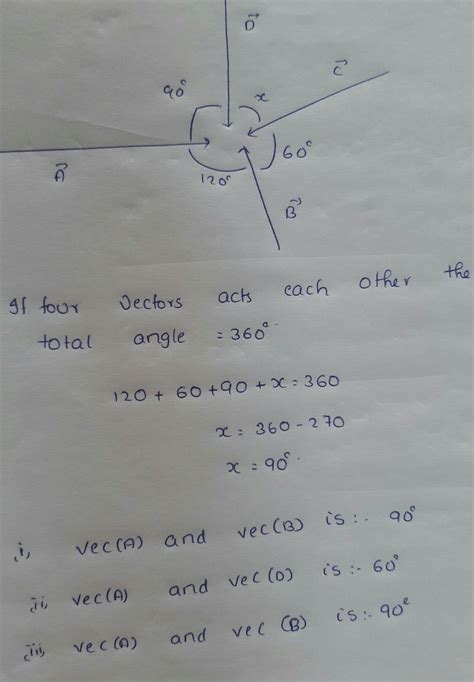 D⃗
90°
x
C⃗
60°
A⃗
120°
B⃗
If four vectors acts each other the
total angle = 360°.
120 + 60 + 90 + x = 360
x = 360 - 270
x = 90°.
i, vec(A) and vec(B) is:- 90°
ii, vec(A) and vec(D) is:- 60°
iii, vec(A) and vec (B) is:- 90°